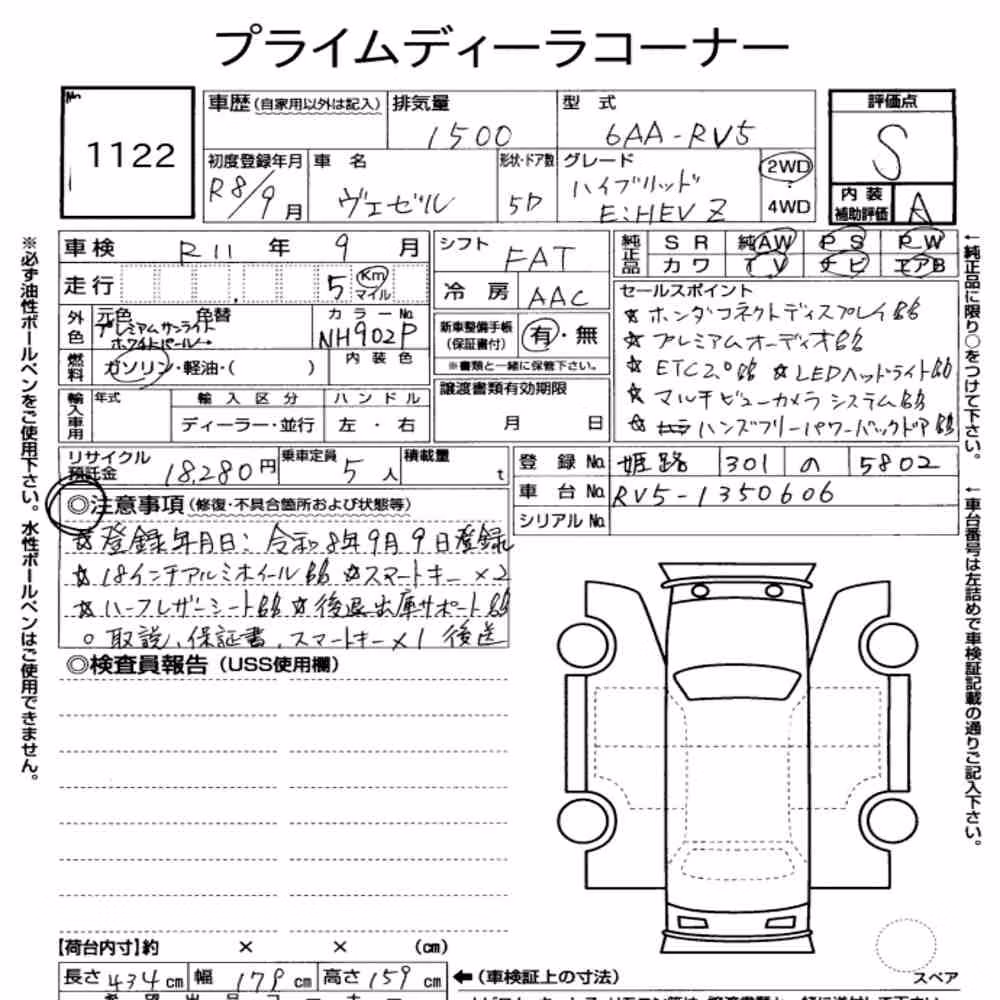 プライムディーラコーナー
No.
1122
車歴(自家用以外は記入)
排気量
1500
型 式
6AA-RV5
初度登録年月
R8/9月
車 名
ヴェゼル
形状・ドア数
5D
グレード
ハイブリッド
E:HEV Z
2WD
・
4WD
評価点
S
内装
補助評価
A
車検 R11 年 9 月
走行 5 Km
マイル
外色
元色 色替
プレミアムサンライト
ホワイトパール
カラーNo.
NH902P
燃料
ガソリン・軽油・( )
内装色
輸入車用
年式
輸入区分
ディーラー・並行
ハンドル
左・右
シフト FAT
冷房 AAC
新車整備手帳
(保証書付)
有・無
※書類と一緒に保管下さい。
譲渡書類有効期限
月 日
純正品
SR 純AW PS PW
カワ TV ナビ エアB
セールスポイント
☆ホンダコネクトディスプレイ
☆プレミアムオーディオ
☆ETC2.0 ☆LEDヘッドライト
☆マルチビューカメラシステム
☆ハンズフリーパワーバックドア
リサイクル
預託金
18,280円
乗車定員
5人
積載量
t
登録No. 姫路 301 の 5802
車台No. RV5-1350606
シリアルNo.
◎注意事項(修復・不具合箇所および状態等)
☆登録年月日:令和8年9月9日登録
☆18インチアルミホイール ☆スマートキー×2
☆ハーフレザーシート ☆後退出庫サポート
○取説、保証書、スマートキー×1 後送
◎検査員報告(USS使用欄)
【荷台内寸】約 × × (cm)
長さ 434cm 幅 179cm 高さ 159cm
←(車検証上の寸法)
スペア
※必ず油性ボールペンをご使用下さい。水性ボールペンはご使用できません。
←純正品に限り○をつけて下さい。
←車台番号は左詰めで車検証記載の通りご記入下さい。